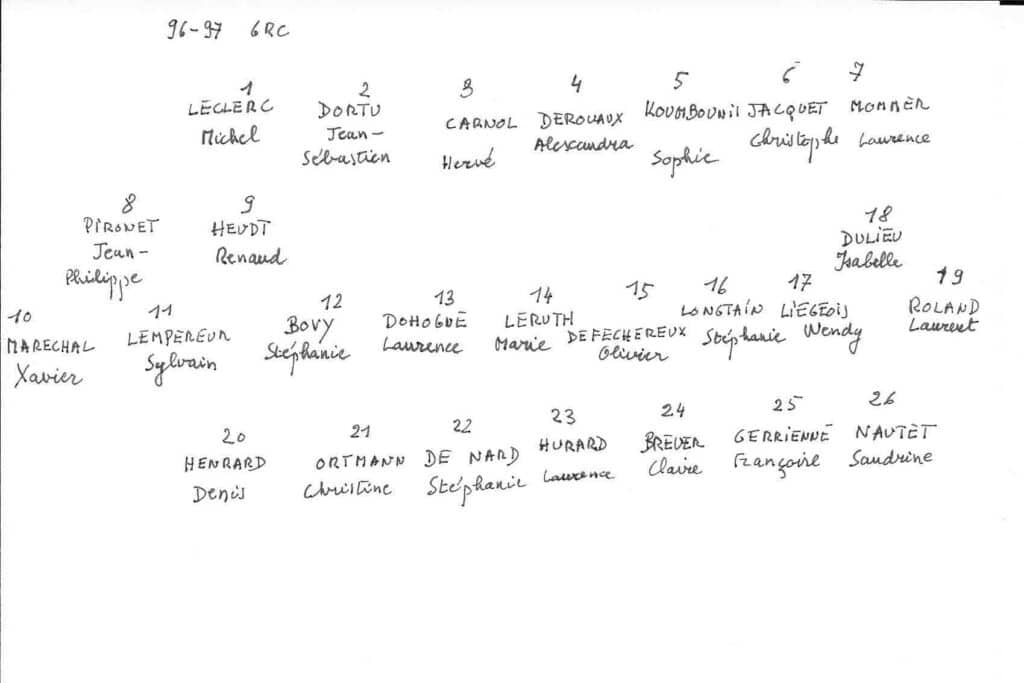 96-97 6RC
1 2 3 4 5 6 7
LECLERC DORTU CARNOL DEROUAUX KOUMBOUNIL JACQUET MOMMER
Michel Jean- Hervé Alexandra Sophie Christophe Laurence
Sébastien
8 9 18
PIRONET HEUDT DULIEU
Jean- Renaud Isabelle
Philippe
10 11 12 13 14 15 16 17 19
MARECHAL LEMPEREUR BOVY DOHOGUE LERUTH DEFECHEREUX LONGTAIN LIEGEOIS ROLAND
Xavier Sylvain Stéphanie Laurence Marie Olivier Stéphanie Wendy Laurent
20 21 22 23 24 25 26
HENRARD ORTMANN DE NARD HURARD BREUER GERRIENNE NAUTET
Denis Christine Stéphanie Laurence Claire Françoise Sandrine